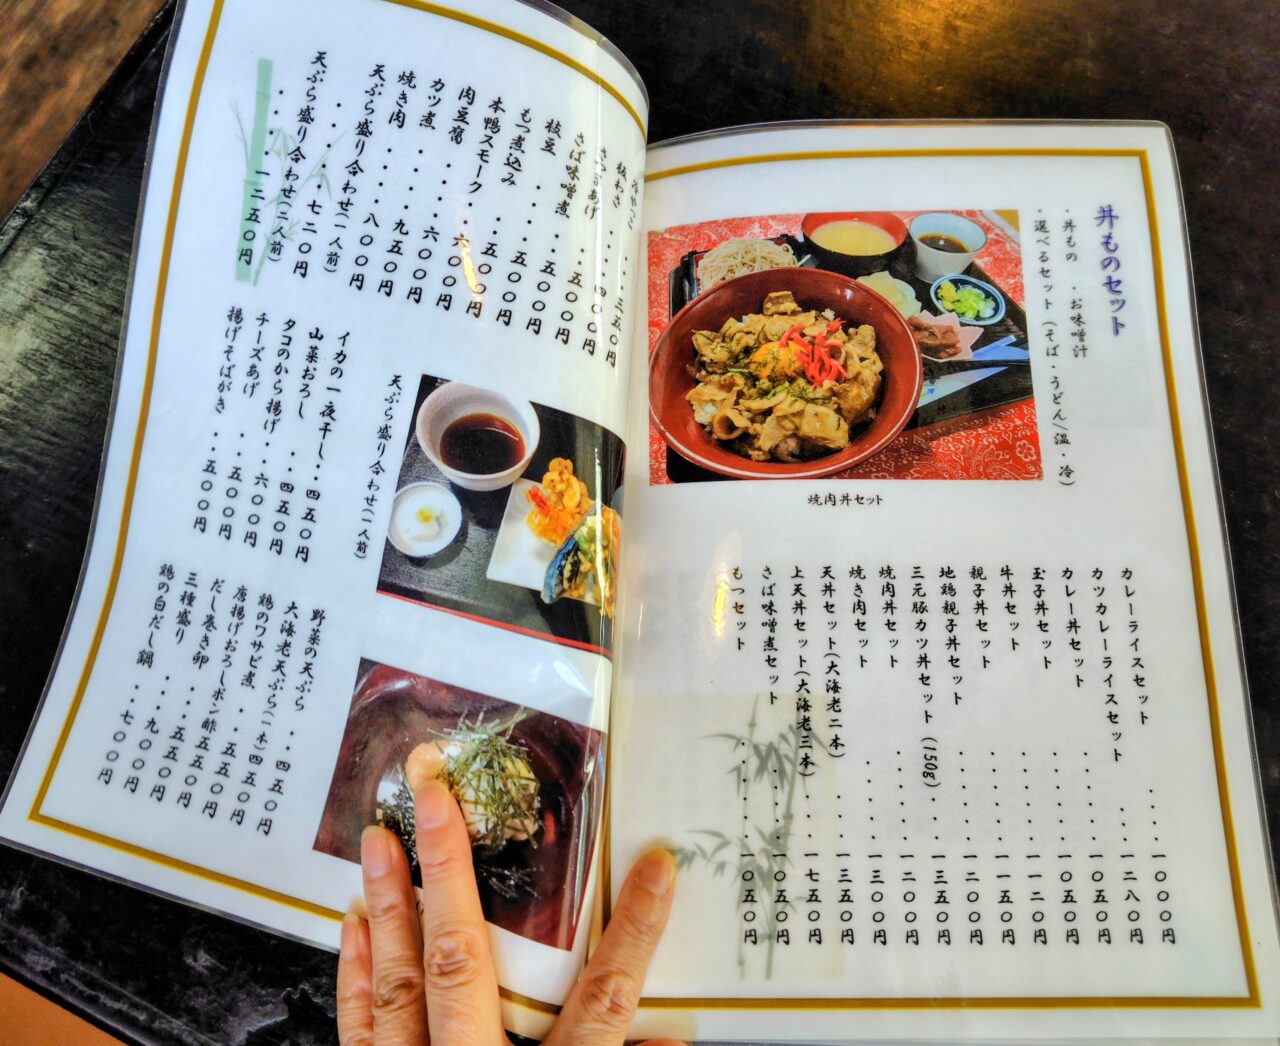 丼ものセット
・丼もの ・お味噌汁
・選べるセット(そば・うどん/温・冷)
焼肉丼セット
カレーライスセット ・・・・一〇〇〇円
カツカレーライスセット ・・一二八〇円
カレー丼セット ・・・・・一〇五〇円
玉子丼セット ・・・・・一〇五〇円
牛丼セット ・・・・・・一一二〇円
親子丼セット ・・・・・・一一五〇円
地鶏親子丼セット ・・・・・一二〇〇円
三元豚カツ丼セット(150g)・・一三五〇円
焼肉丼セット ・・・・・・一二〇〇円
焼き肉セット ・・・・・一三〇〇円
天丼セット(大海老二本)・・・一三五〇円
上天丼セット(大海老三本)・・一七五〇円
さば味噌煮セット ・・・・一〇五〇円
もつセット ・・・・・・一〇五〇円
板わさ ・・・三五〇円
さつまあげ ・・四〇〇円
さば味噌煮 ・・五〇〇円
枝豆 ・・・・五〇〇円
もつ煮込み ・・五〇〇円
本鴨スモーク・・六〇〇円
肉豆腐 ・・・・六〇〇円
カツ煮 ・・・・九五〇円
焼き肉 ・・・・八〇〇円
天ぷら盛り合わせ(一人前)
・・・・・七二〇円
天ぷら盛り合わせ(二人前)
・・・・一二五〇円
天ぷら盛り合わせ(一人前)
イカの一夜干し・・四五〇円
山菜おろし ・・四五〇円
タコのから揚げ・・六〇〇円
チーズあげ ・・五〇〇円
揚げそばがき ・・五〇〇円
野菜の天ぷら ・・四五〇円
大海老天ぷら(一本)四五〇円
鶏のワサビ煮 ・・五五〇円
唐揚げおろしポン酢五五〇円
だし巻き卵 ・・・五五〇円
三種盛り ・・・・九〇〇円
鶏の白だし鍋 ・・・七〇〇円